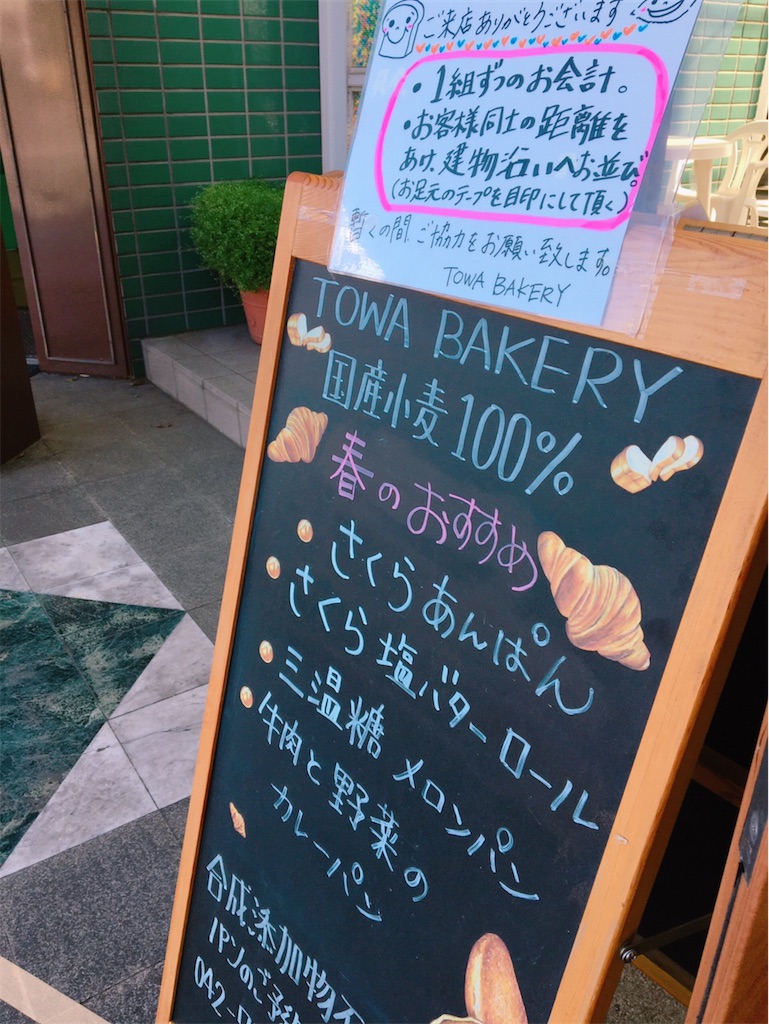 ご来店ありがとうございます
・1組ずつのお会計。
・お客様同士の距離を
あけ、建物沿いへお並び
(お足元のテープを目印にして頂く)
暫くの間、ご協力をお願い致します。
TOWA BAKERY
TOWA BAKERY
国産小麦100%
春のおすすめ
さくらあんぱん
さくら塩バターロール
三温糖 メロンパン
牛肉と野菜の
カレーパン
合成添加物不
パンのご予
042-